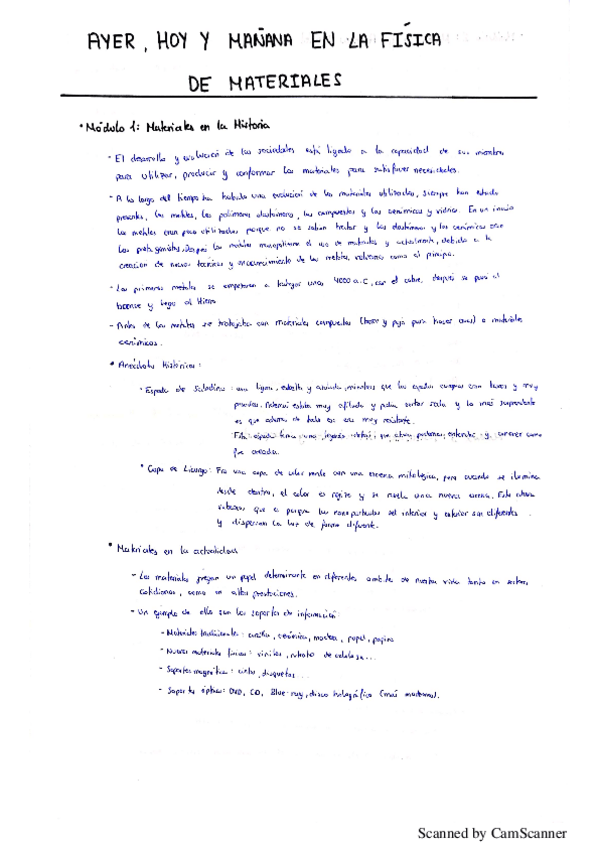 AYER, HOY Y MAÑANA EN LA FÍSICA
DE MATERIALES
• Módulo 1: Materiales en la Historia
- El desarrollo y evolución de las sociedades está ligado a la capacidad de sus
para utilizar, producir y conformar los materiales para satisfacer necesidades.
- A lo largo del tiempo ha habido una evolución de los materiales utilizados, siempre han estado
presentes, los metales, los polímeros, los compuestos y los cerámicos y vidrios. En un inicio
los metales eran poco utilizados porque no se sabían tratar y los y los cerámicos eran
los protagonistas. Después los metales el uso de materiales y actualmente, debido a la
creación de nuevas técnicas y de los metales, volvemos como al principio.
- Los primeros metales se empezaron a trabajar unos 4000 a.C, con el cobre, después se pasó al
bronce y luego al hierro
- Antes de los metales se trabajaba con materiales compuestos (barro y paja para hacer casas) o materiales
cerámicos.
• Anécdotas Históricas:
• Espada de Saladino: una ligera, esbelta y mientras que las espadas europeas eran toscas y muy
pesadas. Además estaba muy afilada y podía cortar seda y lo más sorprendente
es que además de todo eso era muy resistente.
Esta espada tenía una leyenda
fue creada.
• Copa de Licurgo: Era una copa de color verde con una escena mitológica, pero cuando se ilumina
desde dentro, el color es rojizo y se revela una nueva escena. Esto ahora
sabemos que es porque las nanopartículas del interior y exterior son diferentes
y dispersan la luz de forma diferente.
• Materiales en la actualidad
- Los materiales juegan un papel determinante en diferentes ámbitos de nuestra vida tanto en
cotidianos, como en altas prestaciones.
- Un ejemplo de ello son los soportes de información:
- Materiales tradicionales: arcilla, cerámica, madera, papel, papiro
- Nuevos materiales: vinilos, nitrato de celulosa...
- Soportes magnéticos: cinta, disquetes...
- Soportes ópticos: DVD, CD, Blue-ray, disco holográfico (más moderno).
Scanned by CamScanner